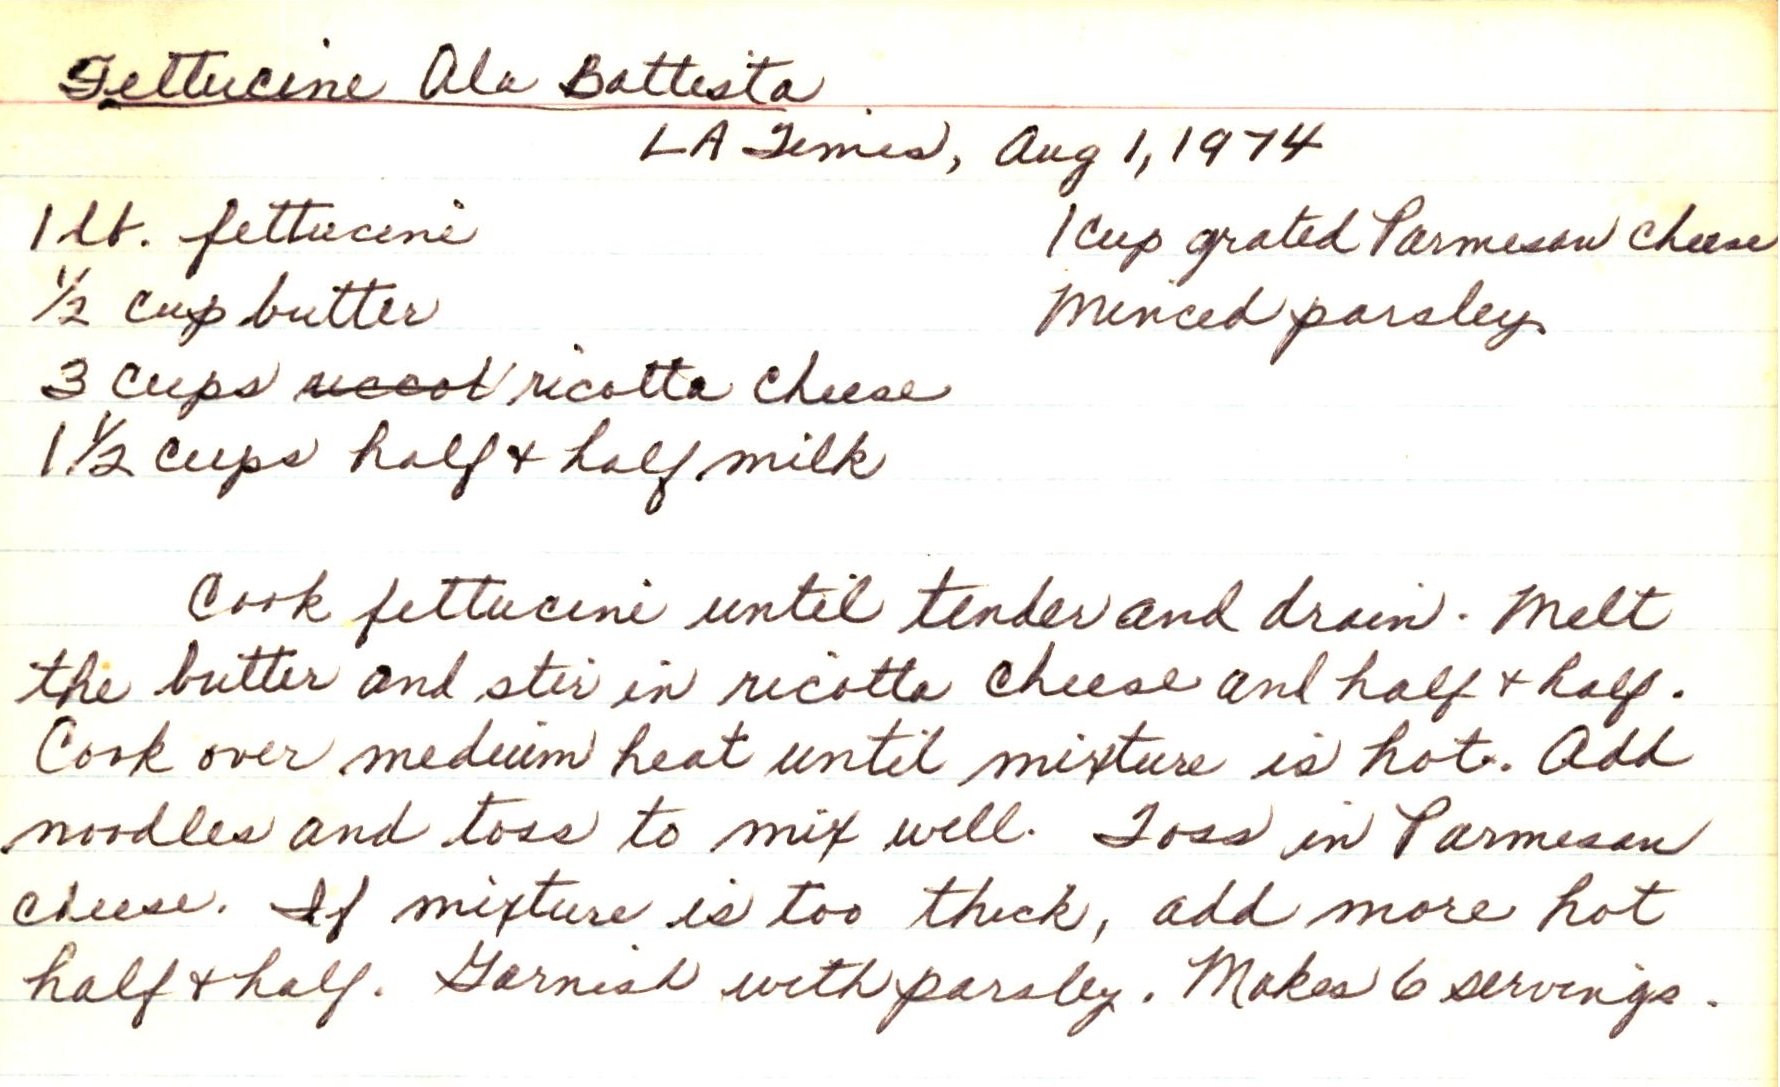 Fettucine Ala Battista
LA Times, Aug 1, 1974
1 lb. fettucini
1/2 cup butter
3 cups ricotta cheese
1 1/2 cups half & half milk
1 cup grated Parmesan cheese
Minced parsley
Cook fettucini until tender and drain. Melt
the butter and stir in ricotta cheese and half & half.
Cook over medium heat until mixture is hot. Add
noodles and toss to mix well. Toss in Parmesan
cheese. If mixture is too thick, add more hot
half & half. Garnish with parsley. Makes 6 servings.